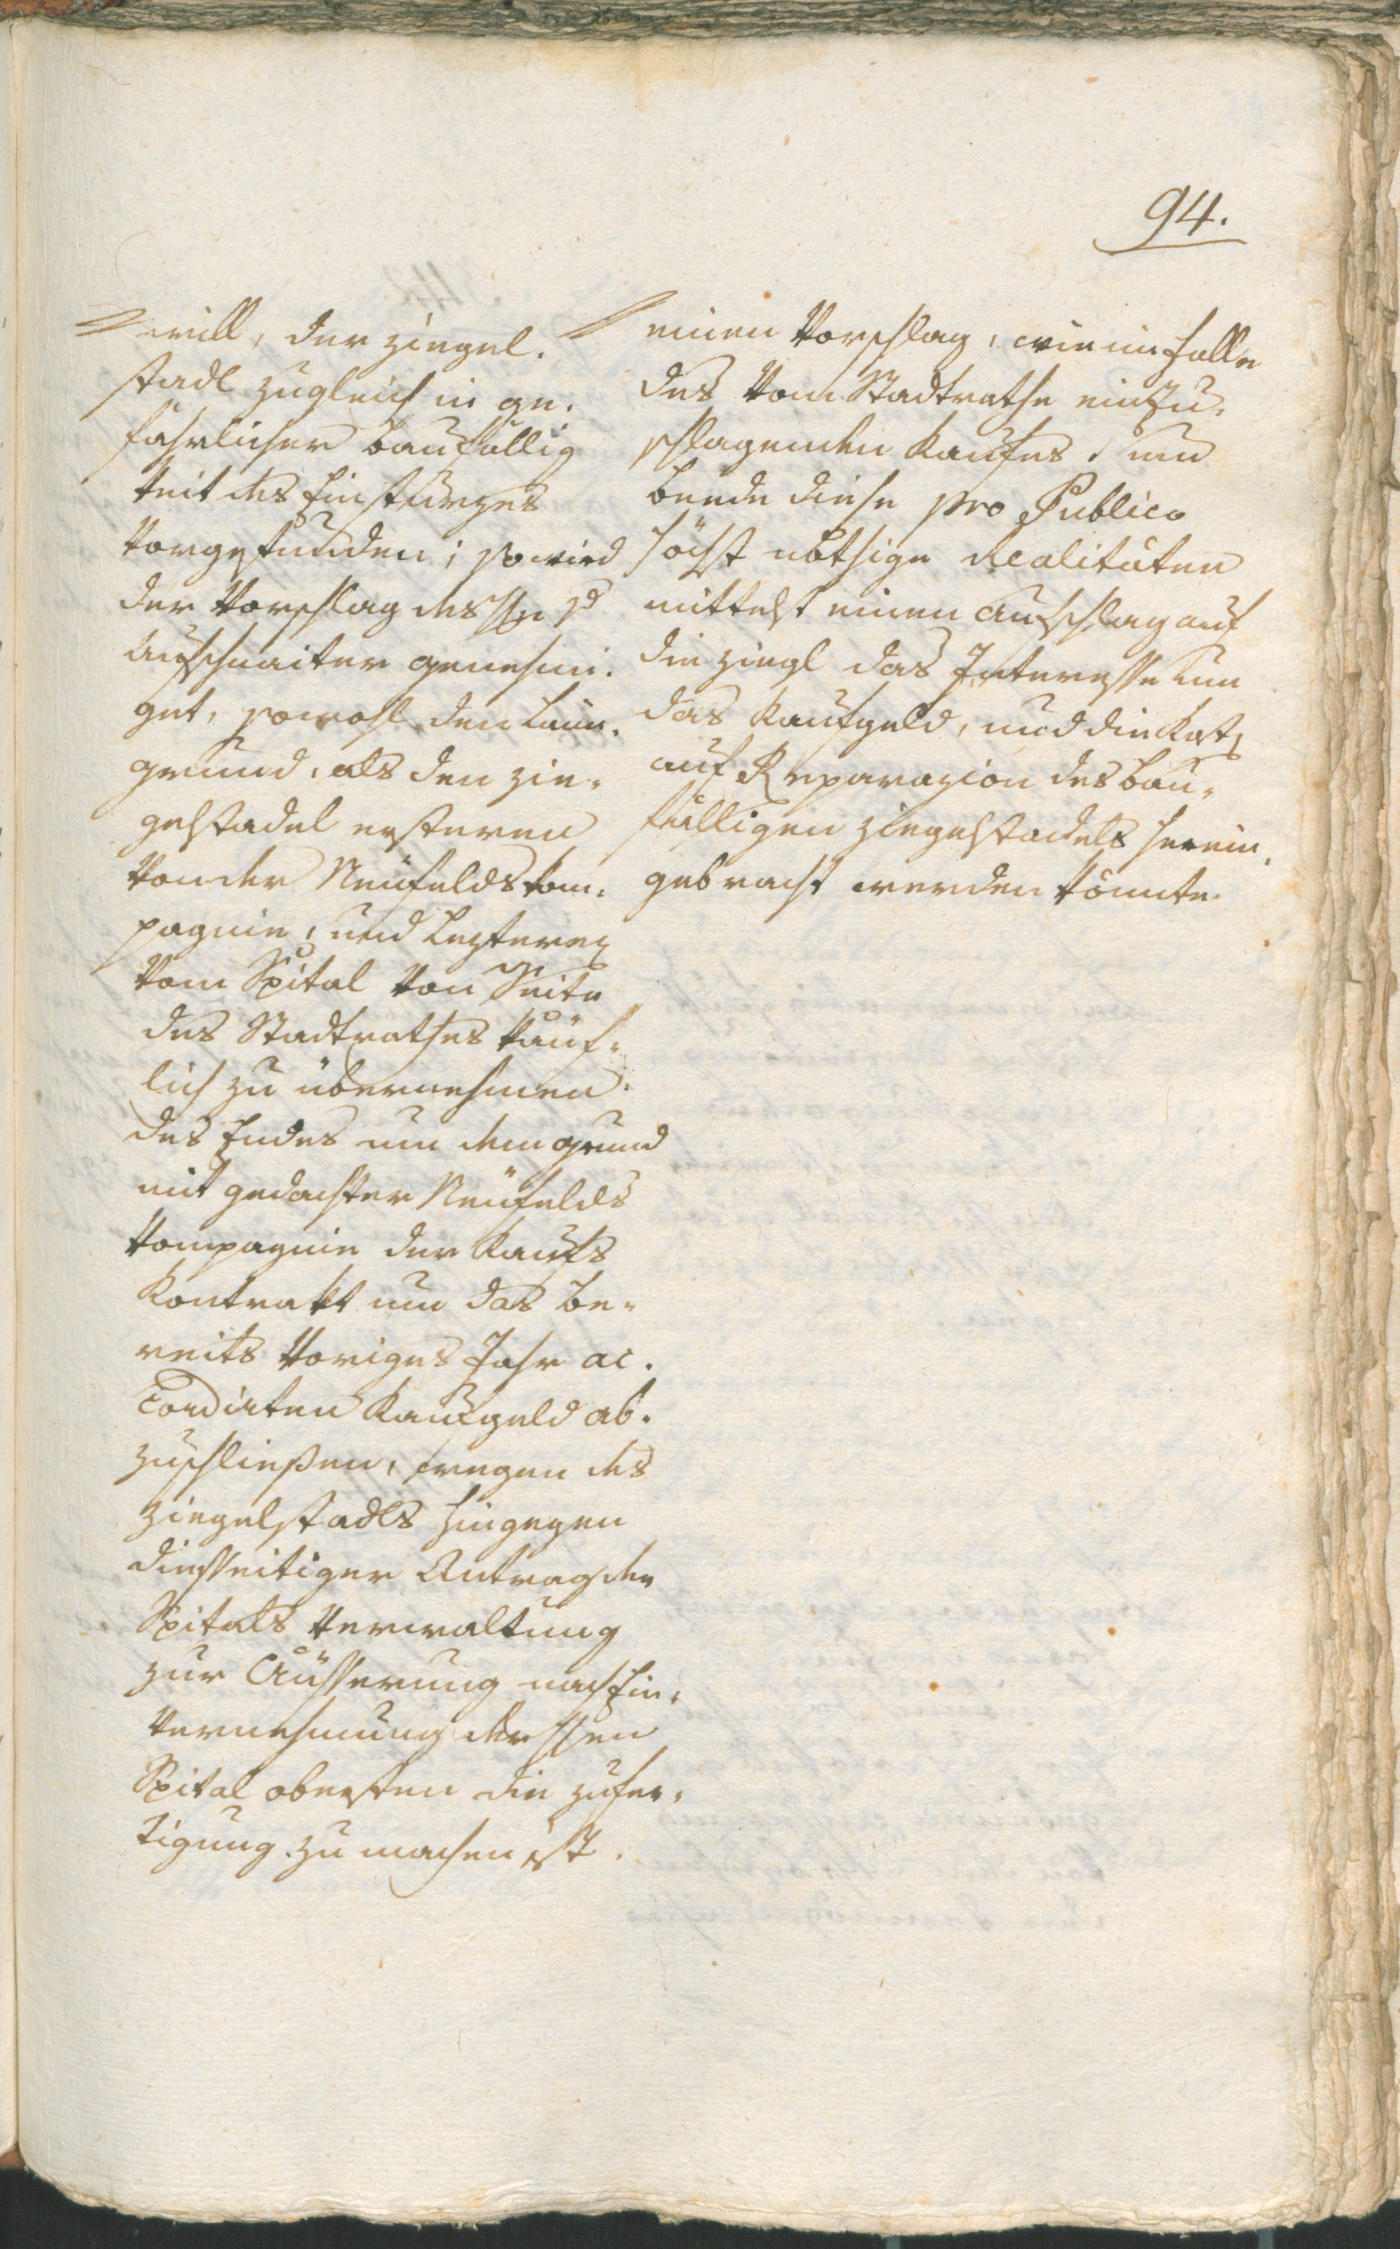 94.
will, der Ziegel-
stadl zugleich in ge-
fährlicher Baufällig
keit des Einsturzes
vorgefunden; so wird
der Vorschlag des Hn
Aufschnaiter genehmi-
get, sowohl den Laim-
grund, als den Zie-
gelstadel ersteren
von der Neufelds Kom-
pagnie, und lezteren
vom Spital von Seite
des Stadtrathes käuf-
lich zu übernehmen.
des Endes um dem Grund
mit gedachter Neufelds
Kompagnie der Kaufs
Kontrakt um das be-
reits voriges Jahr ac-
cordirten Kaufgeld ab-
zuschließen, wegen des
Ziegelstadls hingegen
diesseitiger Antrag der
Spitals Verwaltung
zur Äusserung nach Ein-
vernehmung der Hhen
Spital obersten die Zufer-
tigung zu machen ist.
einen Vorschlag, wie im Falle
des vom Stadtrathe einzu-
schlagenden Kaufes, um
beede diese pro Publico
höchst nöthige Realitäten
mittelst einen Aufschlag auf
die Ziegl das Interesse um
das Kaufgeld, und die Kosten
auf Reparazion des bau-
fälligen Ziegelstadels herein-
gebracht werden könnte.